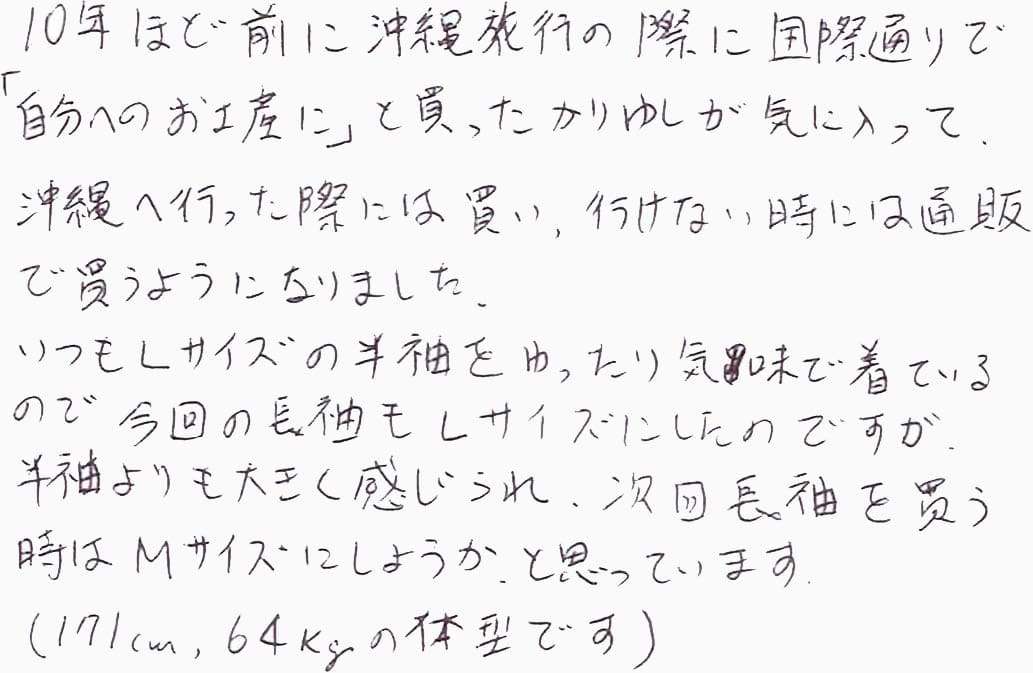 10年ほど前に沖縄旅行の際に国際通りで
「自分へのお土産に」と買ったかりゆしが気に入って、
沖縄へ行った際には買い、行けない時には通販
で買うようになりました。
いつもLサイズの半袖をゆったり気味で着ている
ので今回の長袖もLサイズにしたのですが、
半袖よりも大きく感じられ、次回長袖を買う
時はMサイズにしようか、と思っています。
(171cm, 64Kgの体型です)